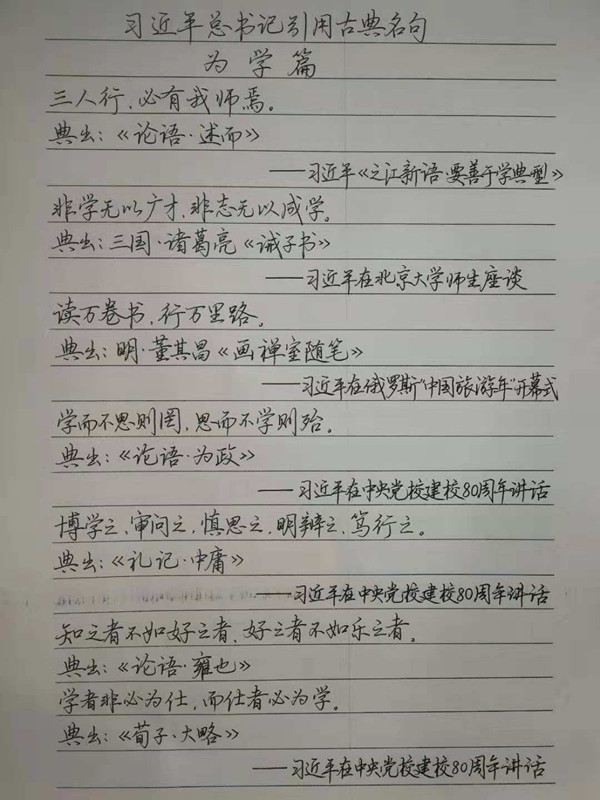 习近平总书记引用古典名句
为学篇
三人行，必有我师焉。
典出：《论语·述而》
——习近平《之江新语·要善于学典型》
非学无以广才，非志无以成学。
典出：三国·诸葛亮《诫子书》
——习近平在北京大学师生座谈
读万卷书，行万里路。
典出：明·董其昌《画禅室随笔》
——习近平在俄罗斯“中国旅游年”开幕式
学而不思则罔，思而不学则殆。
典出：《论语·为政》
——习近平在中央党校建校80周年讲话
博学之，审问之，慎思之，明辩之，笃行之。
典出：《礼记·中庸》
——习近平在中央党校建校80周年讲话
知之者不如好之者，好之者不如乐之者。
典出：《论语·雍也》
学者非必为仕，而仕者必为学。
典出：《荀子·大略》
——习近平在中央党校建校80周年讲话